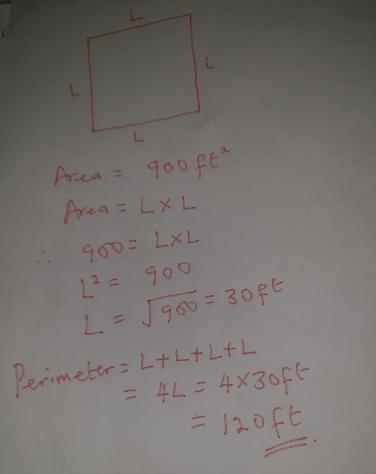 L
L L
L
Area = 900ft²
Area = L×L
∴ 900 = L×L
L² = 900
L = √900 = 30ft
Perimeter = L+L+L+L
= 4L = 4×30ft
= 120ft.